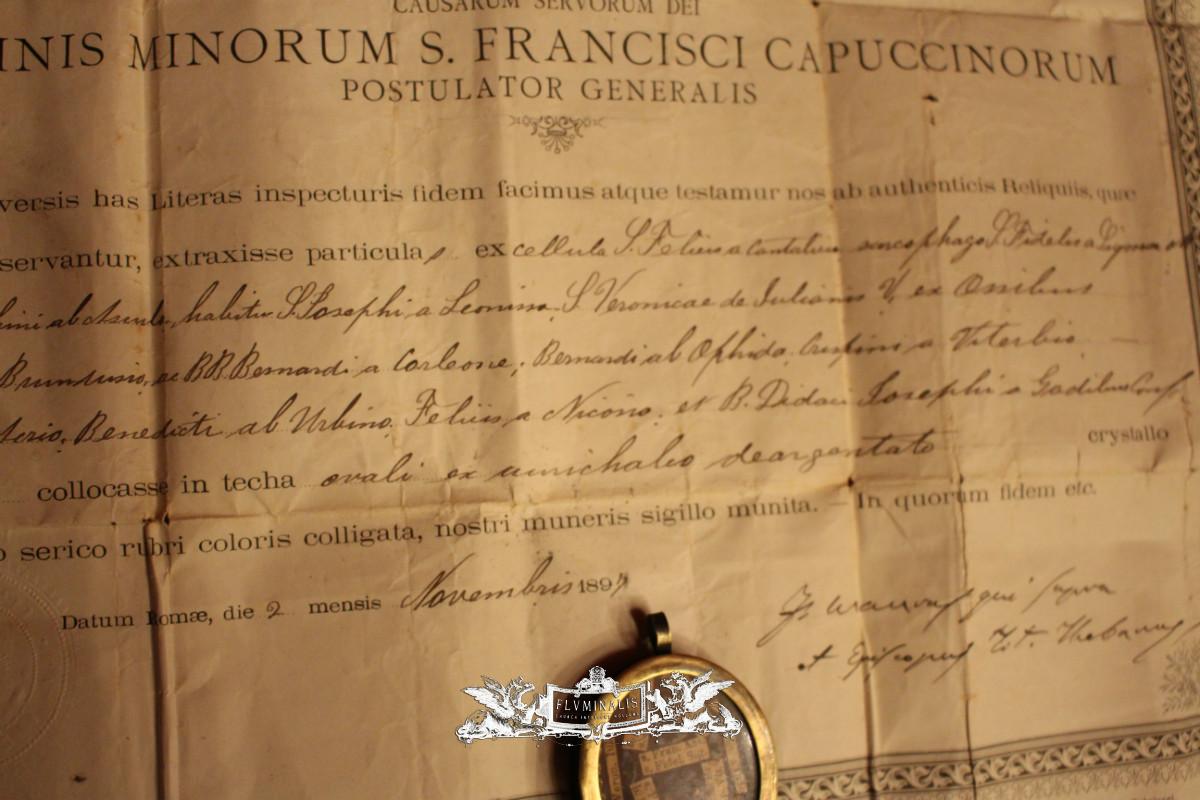 CAUSARUM SERVORUM DEI
INIS MINORUM S. FRANCISCI CAPUCCINORUM
POSTULATOR GENERALIS
versis has Literas inspecturis fidem facimus atque testamur nos ab authenticis Reliquiis, quæ
servantur, extraxisse particulas ex cellula S. Felicis a Cantalicio sarcophago S. Fidelis a
habitu S. Josephi a Leonissa, S. Veronicae de Julianis V, ex Ossibus
Brundusio, ac BB. Bernardi a Corleone, Bernardi ab Ophida, Crispini a Viterbio
Benedicti ab Urbino, Felicis a Nicosia, et B. Didaci Josephi a Gadibus Conf.
collocasse in techa ovali ex aurichalco deargentato crystallo
o serico rubri coloris colligata, nostri muneris sigillo munita. — In quorum fidem etc.
Datum Romæ, die 2 mensis Novembris 189
qui supra
Episcopus Tit. Thebarum
FLVMINALIS